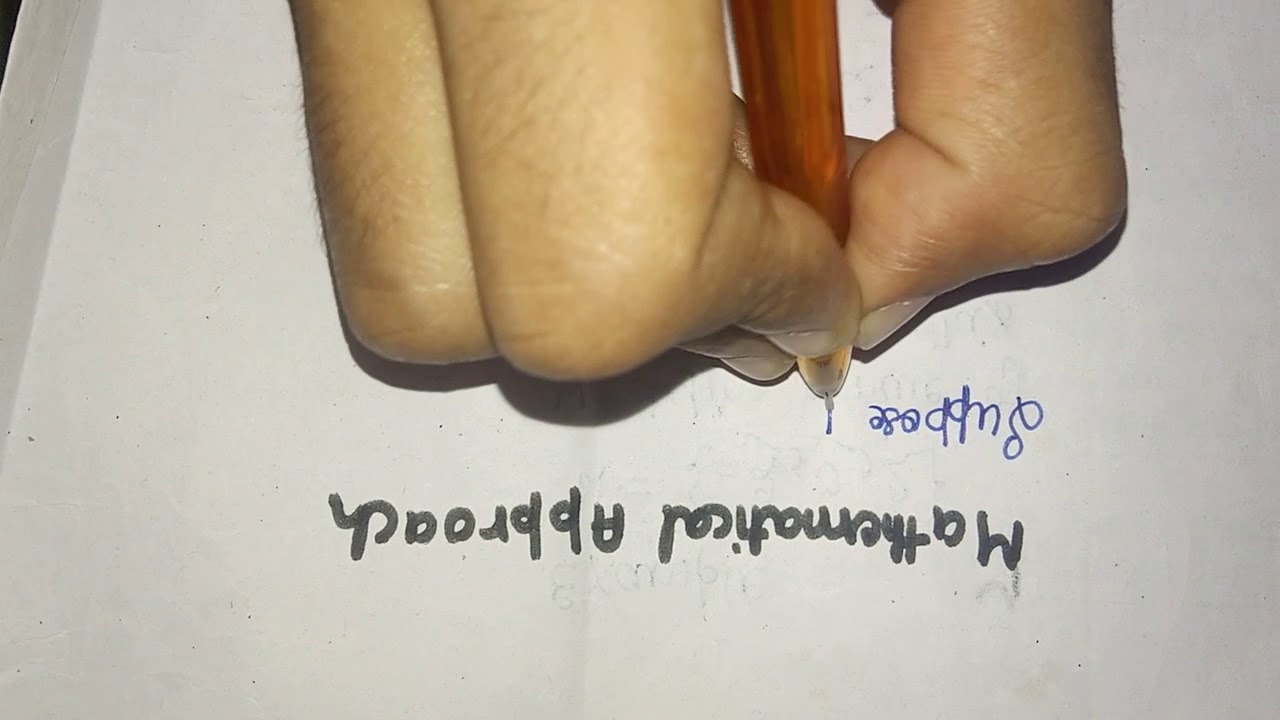 Mathematical Approach
Suppose